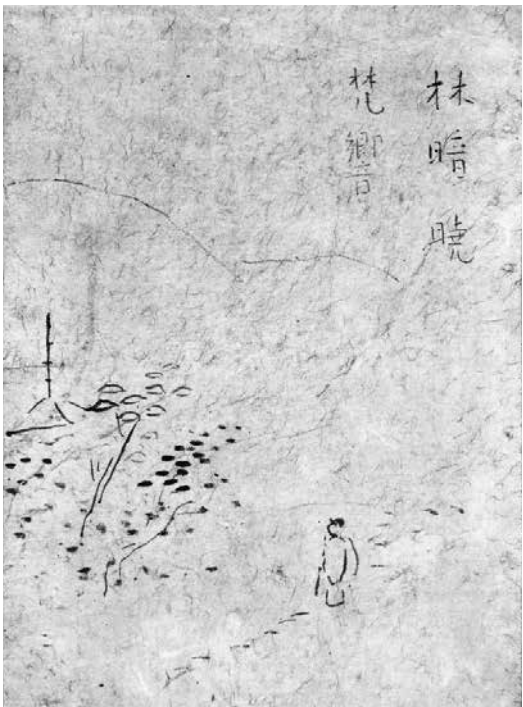 林暗暁
梵響